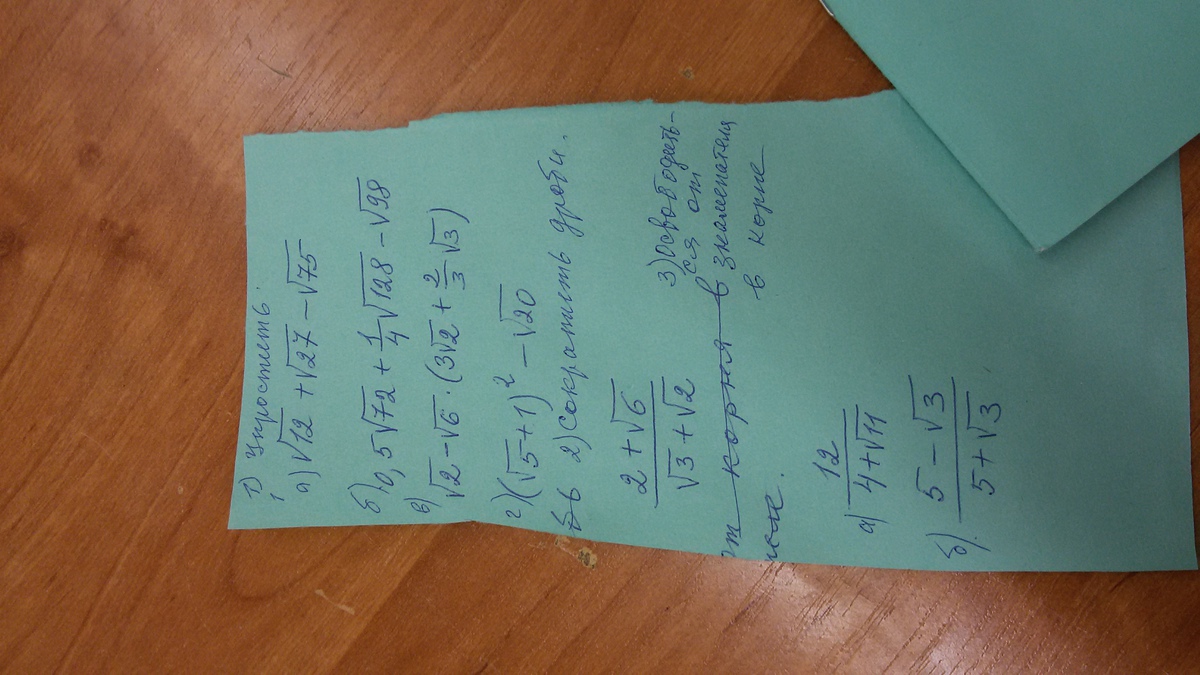 1) Упростить:
а) √12 + √27 − √75
б) 0,5√72 + 1/4 √128 − √98
в) √2 − √6 · (3√2 + 2/3 √3)
г) (√5 + 1)² − √20
2) Сократить дроби.
(2 + √6)/(√3 + √2)
3) Освободить-
ся от
в знаменателя
в корне
а) 12/(4 + √11)
б) (5 − √3)/(5 + √3)